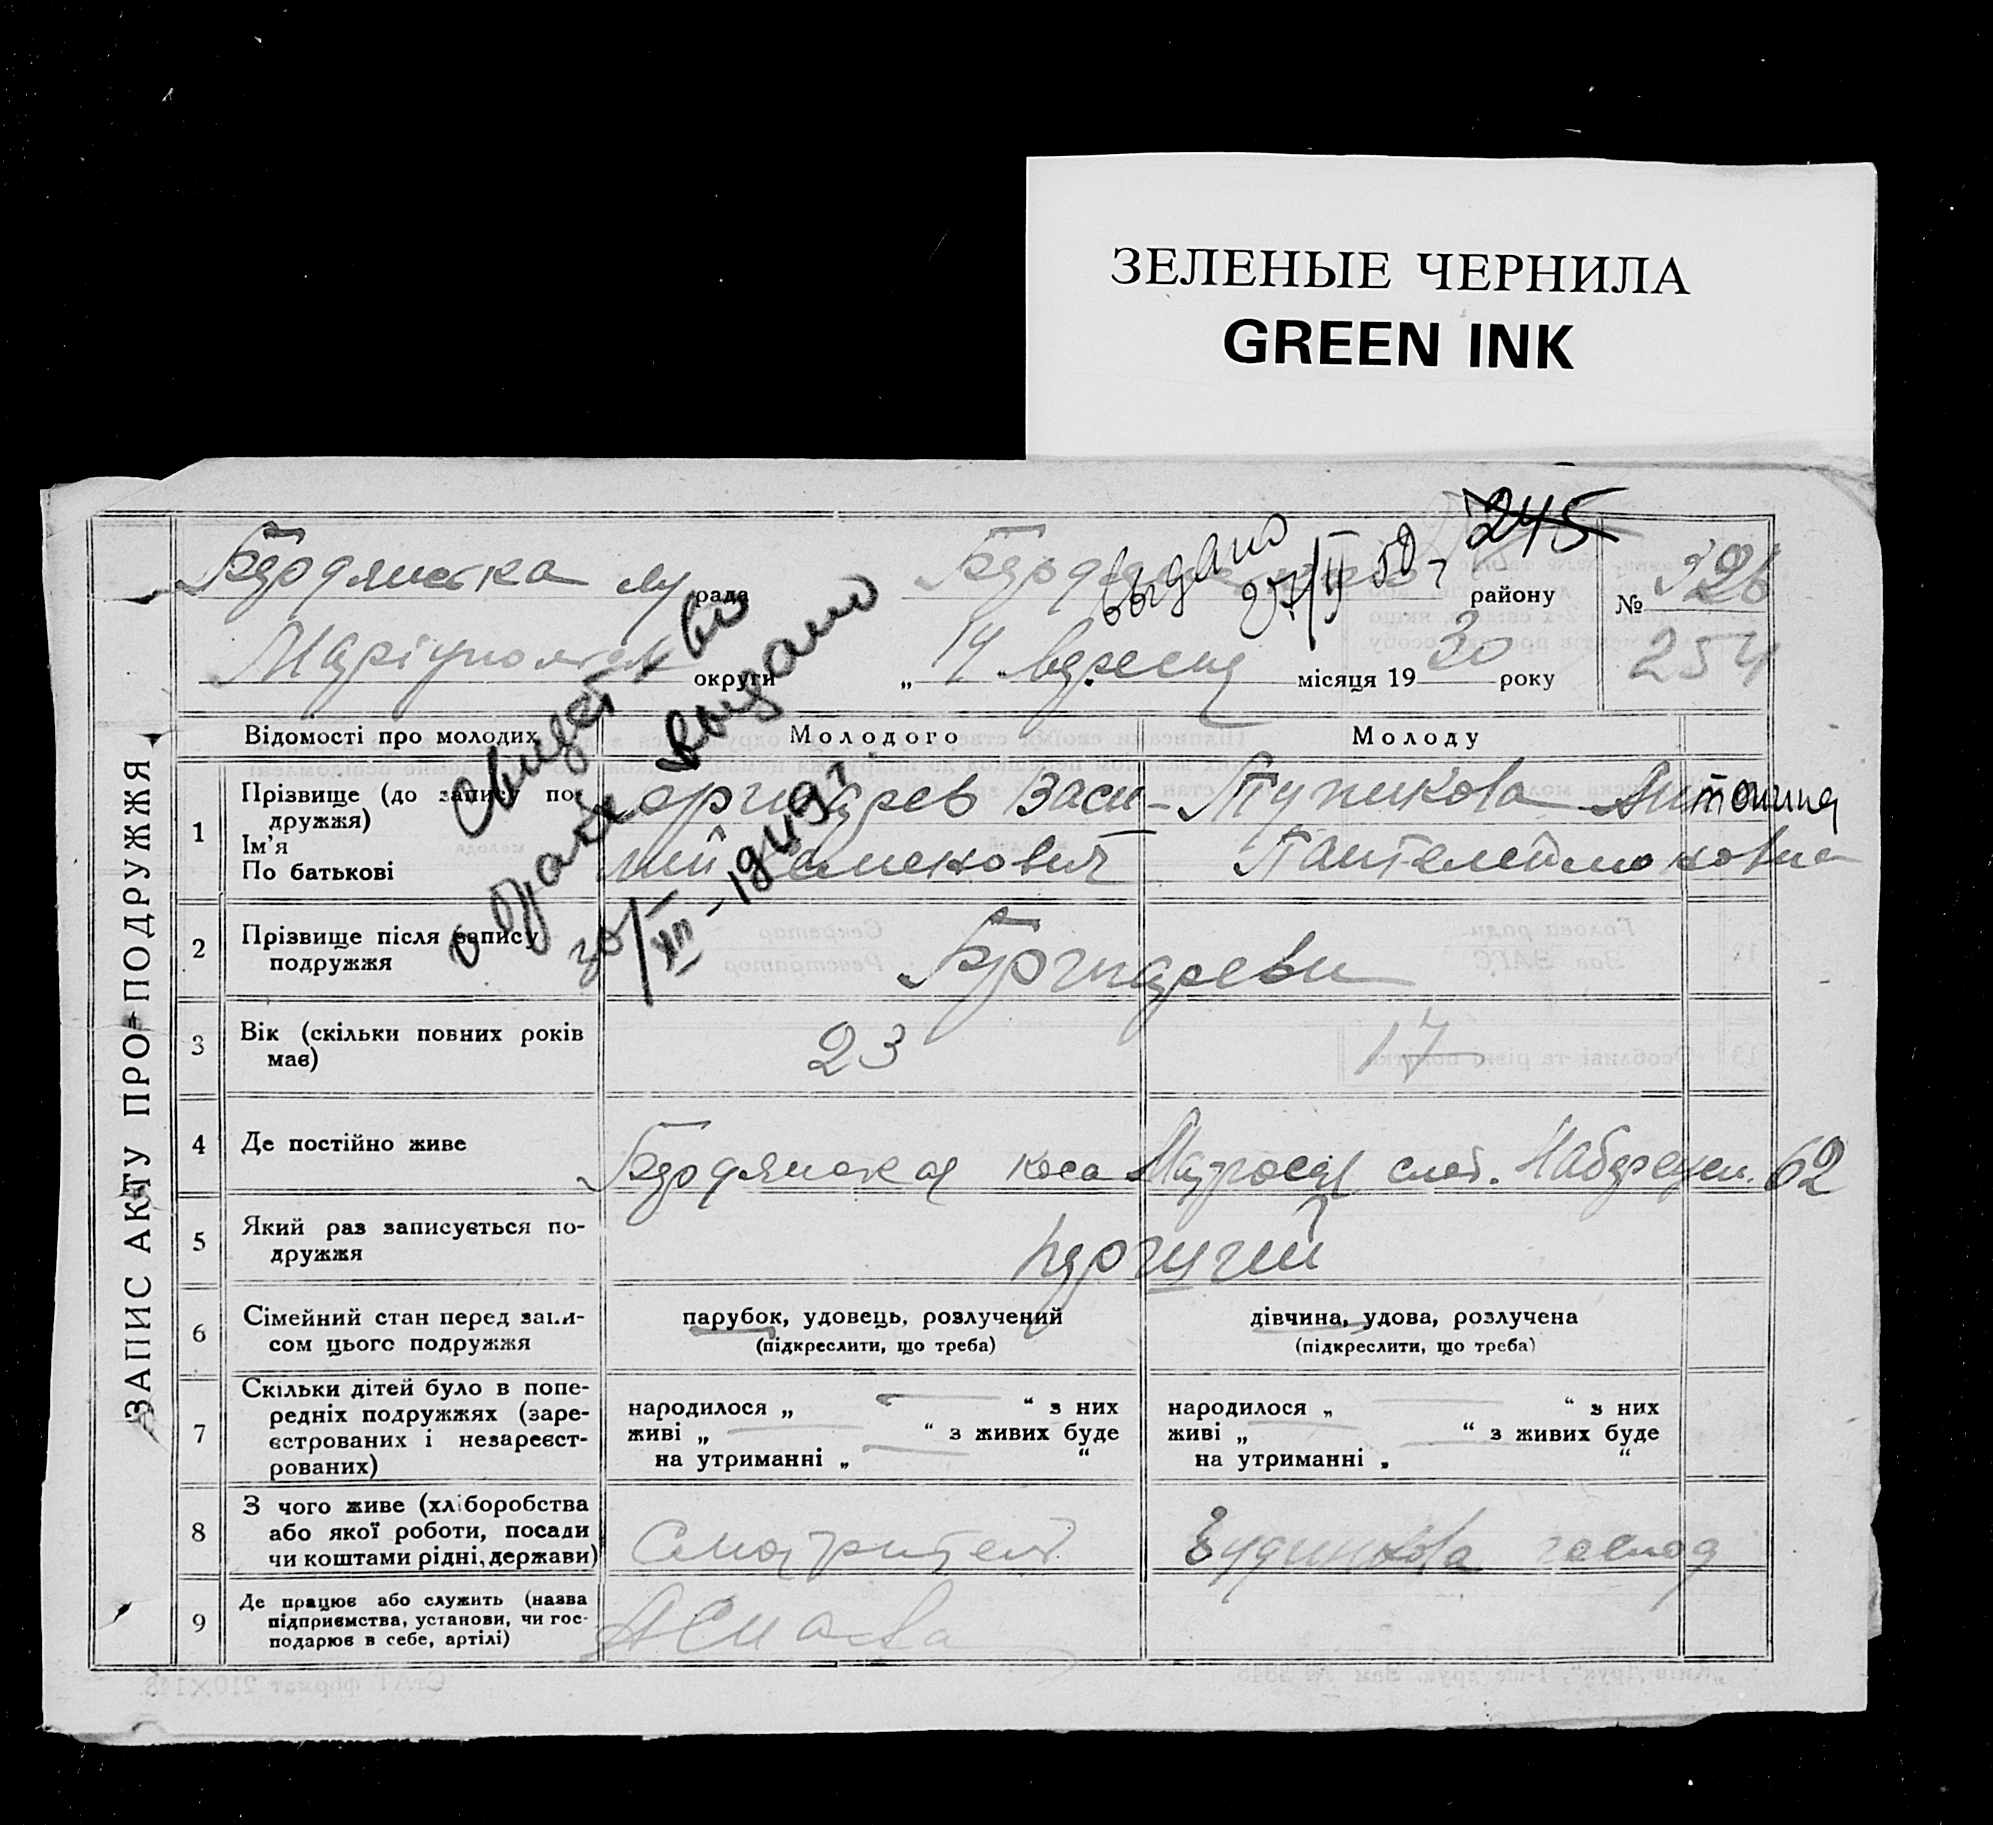 ЗЕЛЕНЫЕ ЧЕРНИЛА
GREEN INK
245
Бердянська м рада Бердянського району № 326
выдано 27/II 50 г
Маріупольськ округи „ 14 вересня місяця 1930 року 254
Свидет-во
о браке выдано
30/XII-1949 г.
ЗАПИС АКТУ ПРО ПОДРУЖЖЯ
Відомості про молодих Молодого Молоду
1 Прізвище (до запису по-
дружжя)
Ім'я
По батькові
Васи-
лий Семенович
Тупикова Антонина
Пантелеймоновна
2 Прізвище після запису
подружжя
3 Вік (скільки повних років
має)
23 17
4 Де постійно живе
Бердянская коса Матросск слоб. Набережн. 62
5 Який раз записується по-
дружжя
первший
6 Сімейний стан перед запи-
сом цього подружжя
парубок, удовець, розлучений
(підкреслити, що треба)
дівчина, удова, розлучена
(підкреслити, що треба)
7 Скільки дітей було в попе-
редніх подружжях (заре-
єстрованих і незареєст-
рованих)
народилося „ “ з них
живі „ “ з живих буде
на утриманні „ “
народилося „ “ з них
живі „ “ з живих буде
на утриманні „ “
8 З чого живе (хліборобства
або якої роботи, посади
чи коштами рідні, держави)
Смотритель
домашнова господ
9 Де працює або служить (назва
підприємства, установи, чи гос-
подарює в себе, артілі)